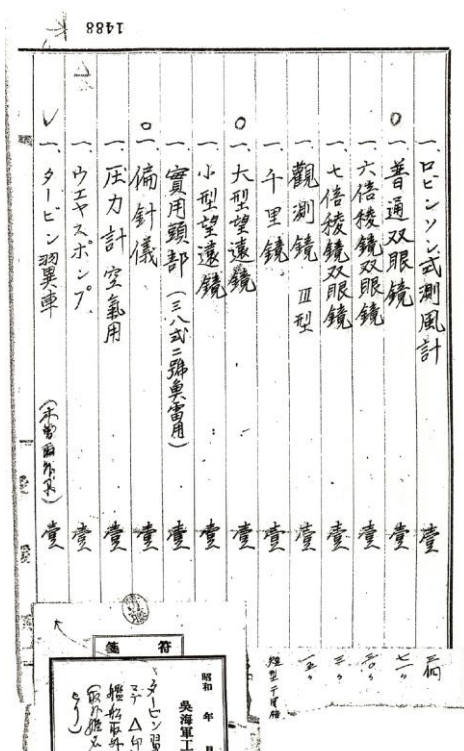 1488
一、ロビンソン式測風計 壹
一、普通双眼鏡 壹
一、六倍稜鏡双眼鏡 壹
一、七倍稜鏡双眼鏡 壹
一、觀測鏡 Ⅲ型 壹
一、千里鏡 壹
一、大型望遠鏡 壹
一、小型望遠鏡 壹
一、實用頭部(三八式二號魚雷用) 壹
一、偏針儀 壹
一、圧力計 空氣用 壹
一、ウエヤスポンプ 壹
一、タービン翼車 壹
符箋
昭和 年 月
吳海軍工
タービン翼